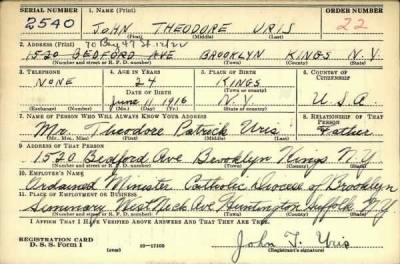 SERIAL NUMBER 1. NAME (Print) ORDER NUMBER
2540 JOHN THEODORE URIS 22
(First) (Middle) (Last)
2. ADDRESS (Print) 70 Bay 47 St.
1520 BEDFORD AVE BROOKLYN KINGS N.Y.
(Number and street or R. F. D. number) (Town) (County) (State)
3. TELEPHONE 4. AGE IN YEARS 5. PLACE OF BIRTH 6. COUNTRY OF CITIZENSHIP
NONE 24 KINGS
DATE OF BIRTH (Town or county)
June 11 1916 N.Y. U.S.A.
(Exchange) (Number) (Mo.) (Day) (Yr.) (State or country)
7. NAME OF PERSON WHO WILL ALWAYS KNOW YOUR ADDRESS 8. RELATIONSHIP OF THAT PERSON
Mr. Theodore Patrick Uris Father
(Mr., Mrs., Miss) (First) (Middle) (Last)
9. ADDRESS OF THAT PERSON
1520 Bedford Ave Brooklyn Kings N.Y.
(Number and street or R. F. D. number) (Town) (County) (State)
10. EMPLOYER'S NAME
Ordained Minister Catholic Diocese of Brooklyn
11. PLACE OF EMPLOYMENT OR BUSINESS
Seminary West Neck Ave Huntington Suffolk N.Y.
(Number and street or R. F. D. number) (Town) (County) (State)
I AFFIRM THAT I HAVE VERIFIED ABOVE ANSWERS AND THAT THEY ARE TRUE.
REGISTRATION CARD
D. S. S. Form 1 John T. Uris
(Registrant's signature)